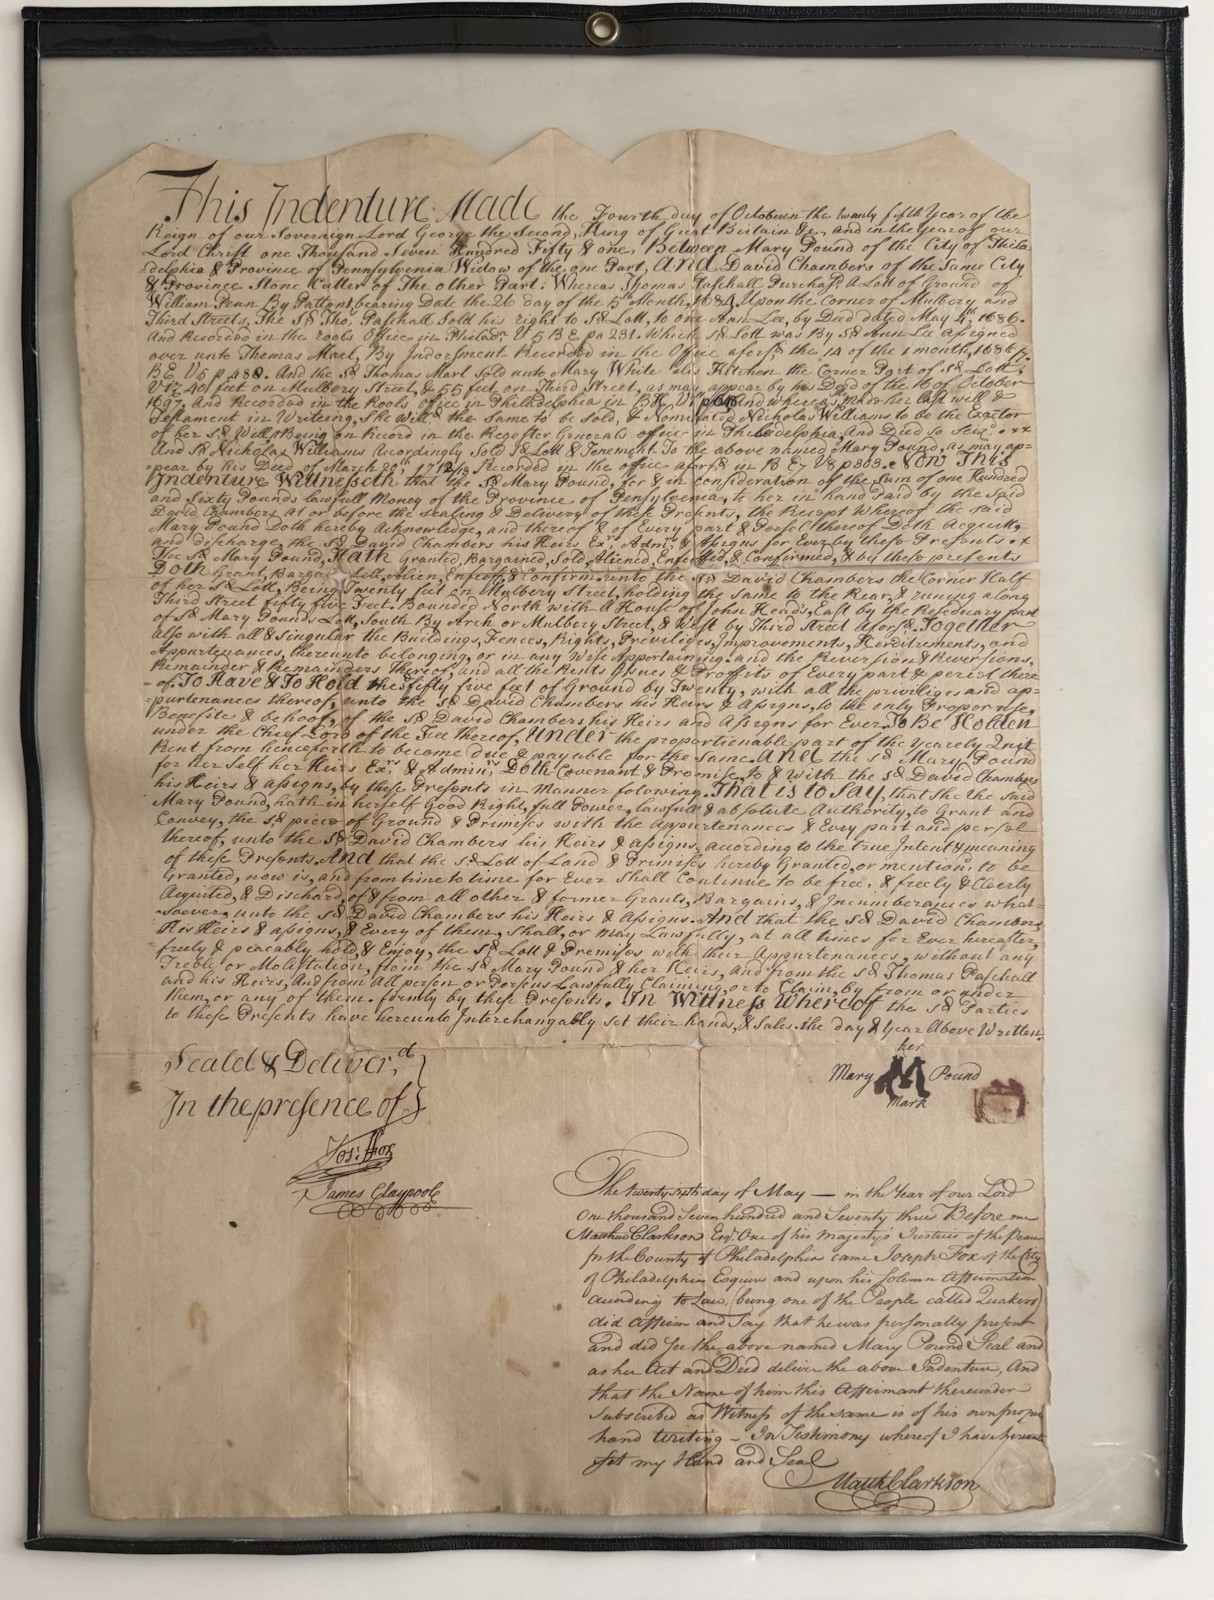 This Indenture Made the Fourth day of October in the twenty fifth Year of the
Reign of our Sovereign Lord George the Second, King of Great Britain &c, and in the year of our
Lord Christ one Thousand Seven Hundred Fifty & one, Between Mary Pound of the City of Phila-
delphia & Province of Pennsylvenia Widow of the one Part, And David Chambers of the Same City
& Province Stone Cutter of The other Part: Whereas Thomas Paschall Purchas'd A Lott of Ground of
William Penn By Pattent bearing Date the 26 day of the 5th Month, 1684, Upon the Corner of Mulbery and
Third Streets, The Sd Thos Paschall Sold his right to Sd Lott, to one Ann Lee, by Deed dated May 4th 1686.
And Recorded in the rools Office in Philada V 5 B E pa 231. Which Sd Lott was By Sd Ann Lee assigned
over unto Thomas Marl, By Indorsment Recorded in the Office aforsd the 14 of the 1 month, 1686/7
B E V5 p 480. And the Sd Thomas Marl Sold unto Mary White Kitchen the Corner Part of Sd Lott,
Viz 40 feet on Mulbery Street, & 55 feet on Third Street, as may appear by his Deed of the 16 of October
1697, And Recorded in the Rools Office in Philadelphia in And whereas Mary her last will &
Testament in Writeing, She will'd the Same to be Sold, & Nominated Nicholas Williams to be the Exetor
of her Sd Will, Being on Record in the Regester Generals office in Philadelphia, And Died So
And Sd Nicholas Williams Acordingly Sold Sd Lott & Tenement To the above named Mary Pound, as may ap-
=pear by his Deed of March 1712/13 Recorded in the office aforsd in B E 7 V8 p 303. Now This
Indenture Wittnesseth that the Sd Mary Pound, for & in consideration of the Sum of one Hundred
and Sixty Pounds lawfull Money of the Province of Pensylvenia, to her in hand paid by the Said
David Chambers At or before the Sealing & Delivery of these Presents, the Receipt Whereof the Said
Mary Pound Doth hereby Acknowledge, and thereof & of Every part & Persel thereof Doth Acquitt
and discharge, the Sd David Chambers his Heirs Exrs Admrs & Assigns for Ever by these Presents
The Sd Mary Pound, Hath Granted, Bargained, Sold, Aliened, Enfeoffed, & Confirmed, & by these presents
Doth Grant, Bargain Sell, Alien, Enfeoff, & Confirm unto the Sd David Chambers the Corner Half
of her Sd Lott, Being Twenty feet on Mulbery Street, holding the same to the Rear, & runing along
Third Street fifty five Feet. Bounded North with A House of John Heads, East by the Reseduary part
of Sd Mary Pounds Lott, South By Arch or Mulbery Street, & West by Third Street aforsd. Together
also with all & Singular the Buildings, Fences, Rights, Privileges, Improvements, Herditments, and
Appurtenances, thereunto belonging, or in any Wise Appertaining, and the Reversion & Reversions,
Remainder & Remainders Thereof, and all the Rents Issues & Proffits of Every part & percel there
=of. To Have & To Hold the Fifty five feet of Ground by Twenty, with all the priviliges and ap=
=purtenances thereof, unto the Sd David Chambers his Heirs & Assigns, to the only Propor use,
Benefite & behoof, of the Sd David Chambers his Heirs and Assigns for Ever. To Be Holden
under the Chief Lord of the Fee thereof, Under the proportionable part of the Yearely Quit
Rent from henceforth to become due & payable for the Same. And the Sd Mary Pound
for her Self her Heirs Exrs & Adminrs Doth Covenant & Promise, to & With the Sd David Chambers
his Heirs & assigns, by these Presents in Manner folowing. That is to Say, that She the Said
Mary Pound, hath in herself Good Right, full Power, lawfull & absolute Authority, to Grant and
Convey, the Sd piece of Ground & Primises with the Appurtenances & Evey part and persel
thereof, unto the Sd David Chambers his Heirs & assigns, acording to the true Intent & meaning
of these Presents And that the Sd Lott of Land & Primises hereby Granted, or mentiond to be
Granted, now is, and from time to time for Ever Shall Continue to be free, & freely & Cleerly
Acquited, & Dischard, of & from all other & former Grants, Bargains, & Incumberances what-
-soever, unto the Sd David Chambers his Heirs & Assigns. And that the Sd David Chambers,
His Heirs & assigns, & Every of them, Shall, or May Lawfully, at all times for Ever hereafter,
freely & peacably hold, & Enjoy, the Sd Lott & Premises with their Appurtenances, without any
Treble or Molistation, from the Sd Mary Pound & her Heirs, and from the Sd Thomas Paschall
and his Heirs, And from All person or Persons Lawfully Claiming, or to Claim, by from or under
them, or any of them. firmly by these Presents. In Wittness whereof the Sd Parties
to these Presents have hereunto Interchangably set their hands, & Sales. the day & Year Above Written.
Seald & Deliver,d
In the presence of
her
Mary M Pound
Mark
Jos: Fox
James Claypoole
The twenty sixth day of May — in the Year of our Lord
One thousand Seven hundred and Seventy three Before me
Matthew Clarkson Esqr. One of his Majesty's Justices of the Peace
for the County of Philadelphia came Joseph Fox of the City
of Philadelphia Esquire and upon his Solemn Affirmation
according to Law, (being one of the People called Quakers)
did affirm and Say that he was personally present
and did See the above named Mary Pound Seal and
as her Act and Deed deliver the above Indenture, And
that the Name of him this Affirmant thereunder
Subscribed as Witness of the same is of his own proper
hand writing — In Testimony whereof I have hereunto
Set my Hand and Seal
Matth Clarkson